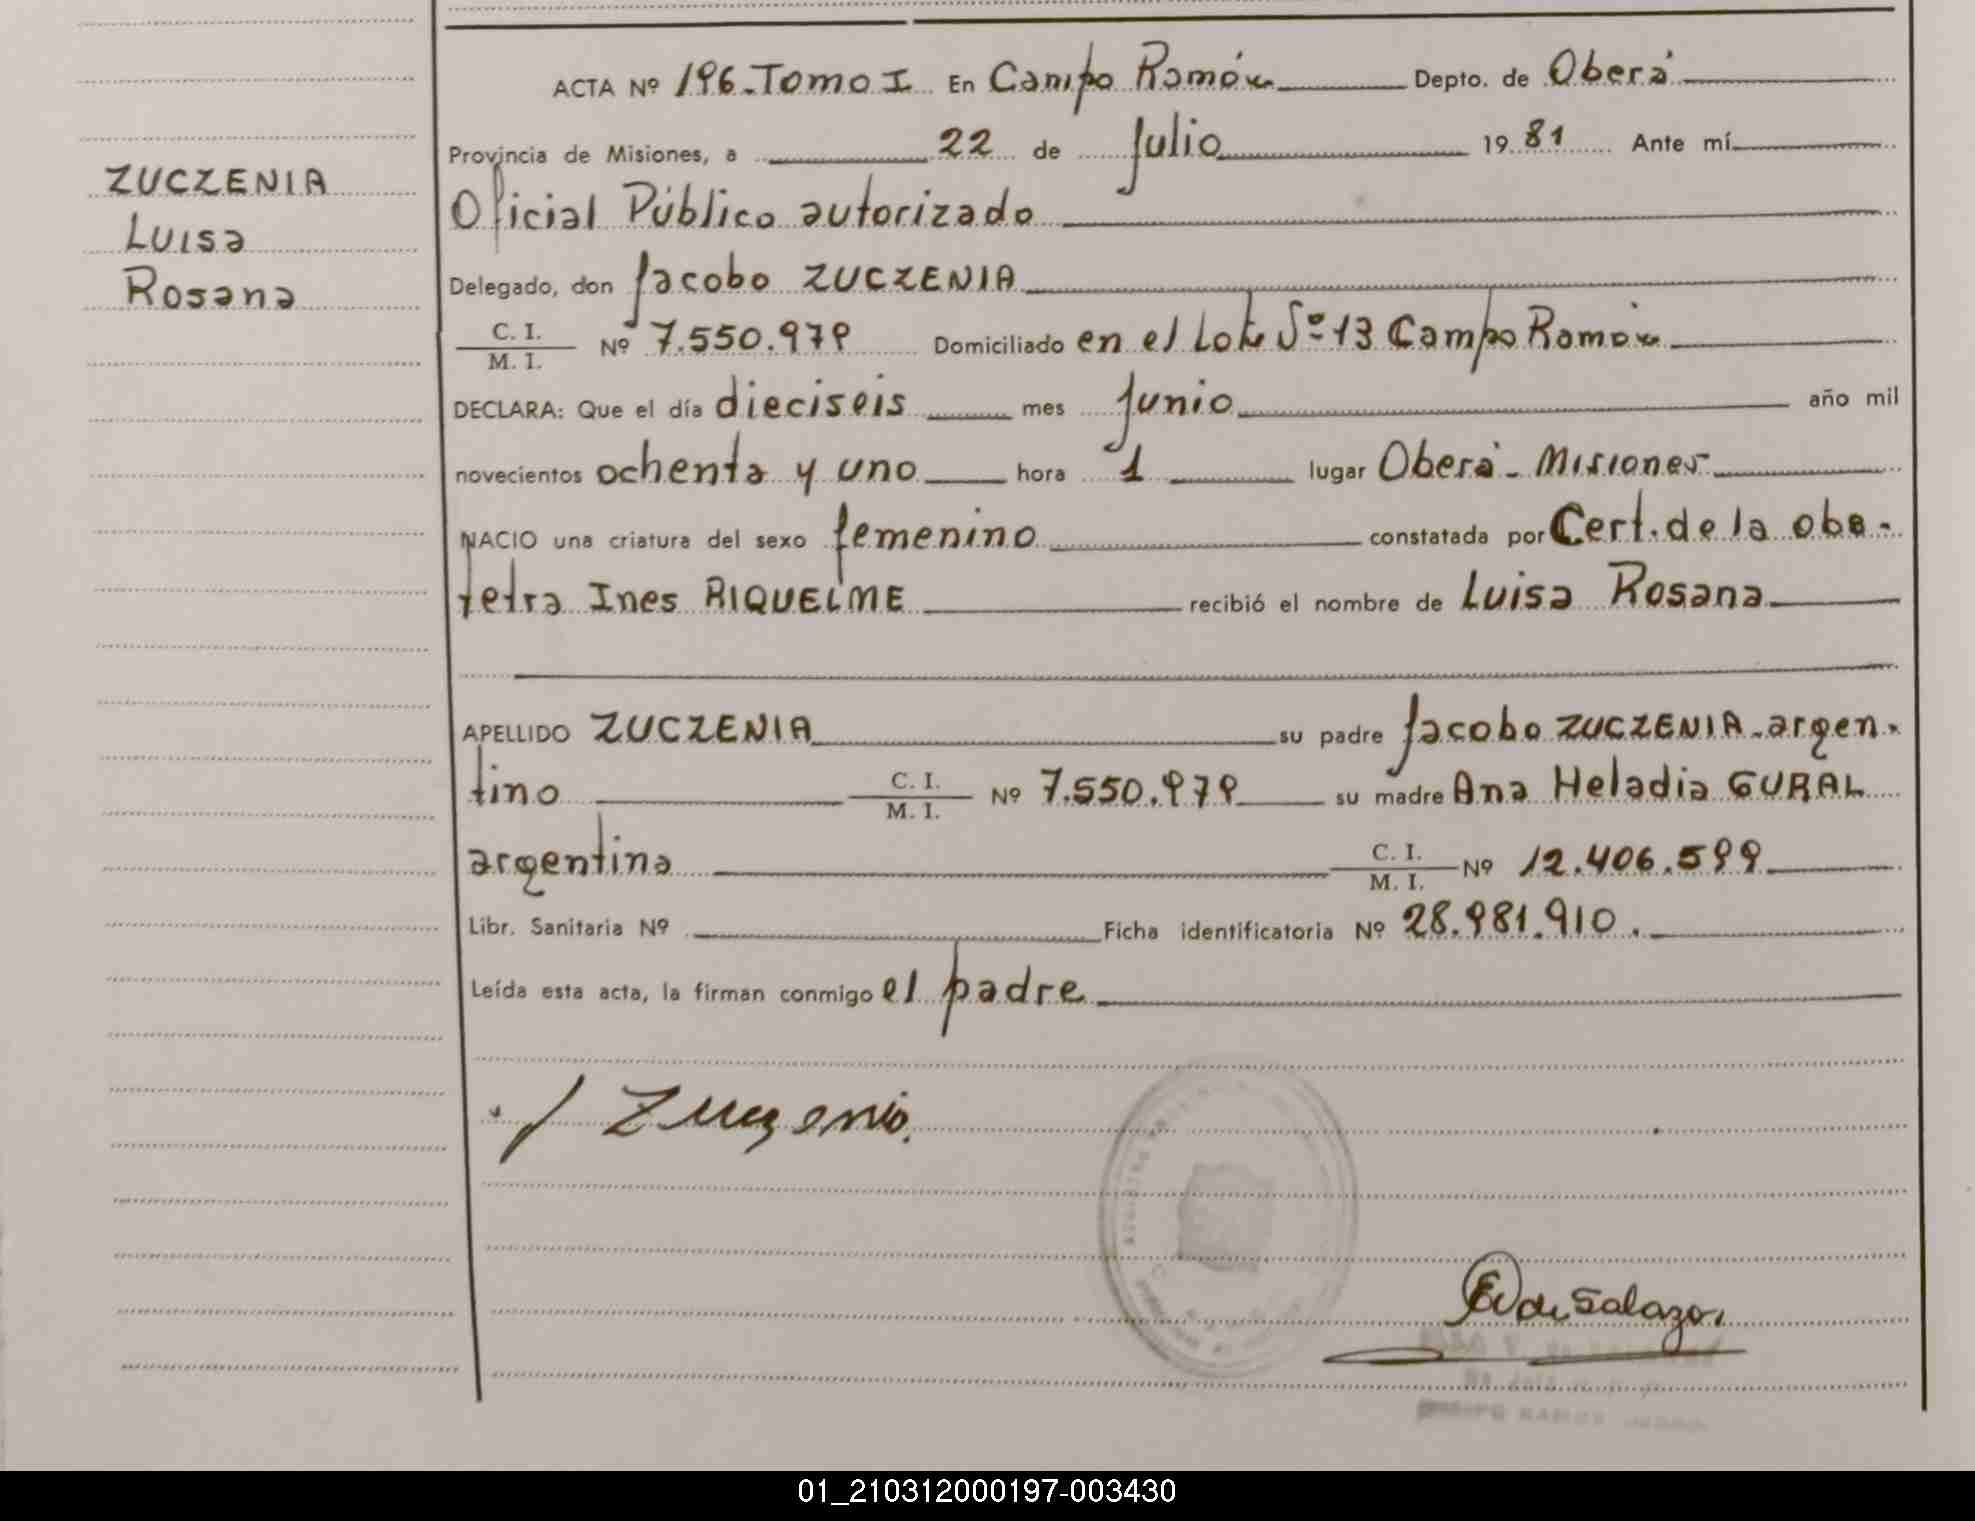 ZUCZENIA
Luisa
Rosana
ACTA Nº 196. Tomo I En Campo Ramón Depto. de Oberá
Provincia de Misiones, a 22 de Julio 1981 Ante mí
Oficial Público autorizado
Delegado, don Jacobo ZUCZENIA
C. I.
M. I. Nº 7.550.979 Domiciliado en el Lote Sº 13 Campo Ramón
DECLARA: Que el día dieciseis mes Junio año mil
novecientos ochenta y uno hora 1 lugar Oberá - Misiones
NACIO una criatura del sexo femenino constatada por Cert. de la obs-
tetra Ines RIQUELME recibió el nombre de Luisa Rosana
APELLIDO ZUCZENIA su padre Jacobo ZUCZENIA - argen-
tino C. I.
M. I. Nº 7.550.979 su madre Ana Heladia GURAL
argentina C. I.
M. I. Nº 12.406.599
Libr. Sanitaria Nº Ficha identificatoria Nº 28.981.910.
Leída esta acta, la firman conmigo el padre
J Zuczenia.
de Salazar
01_210312000197-003430